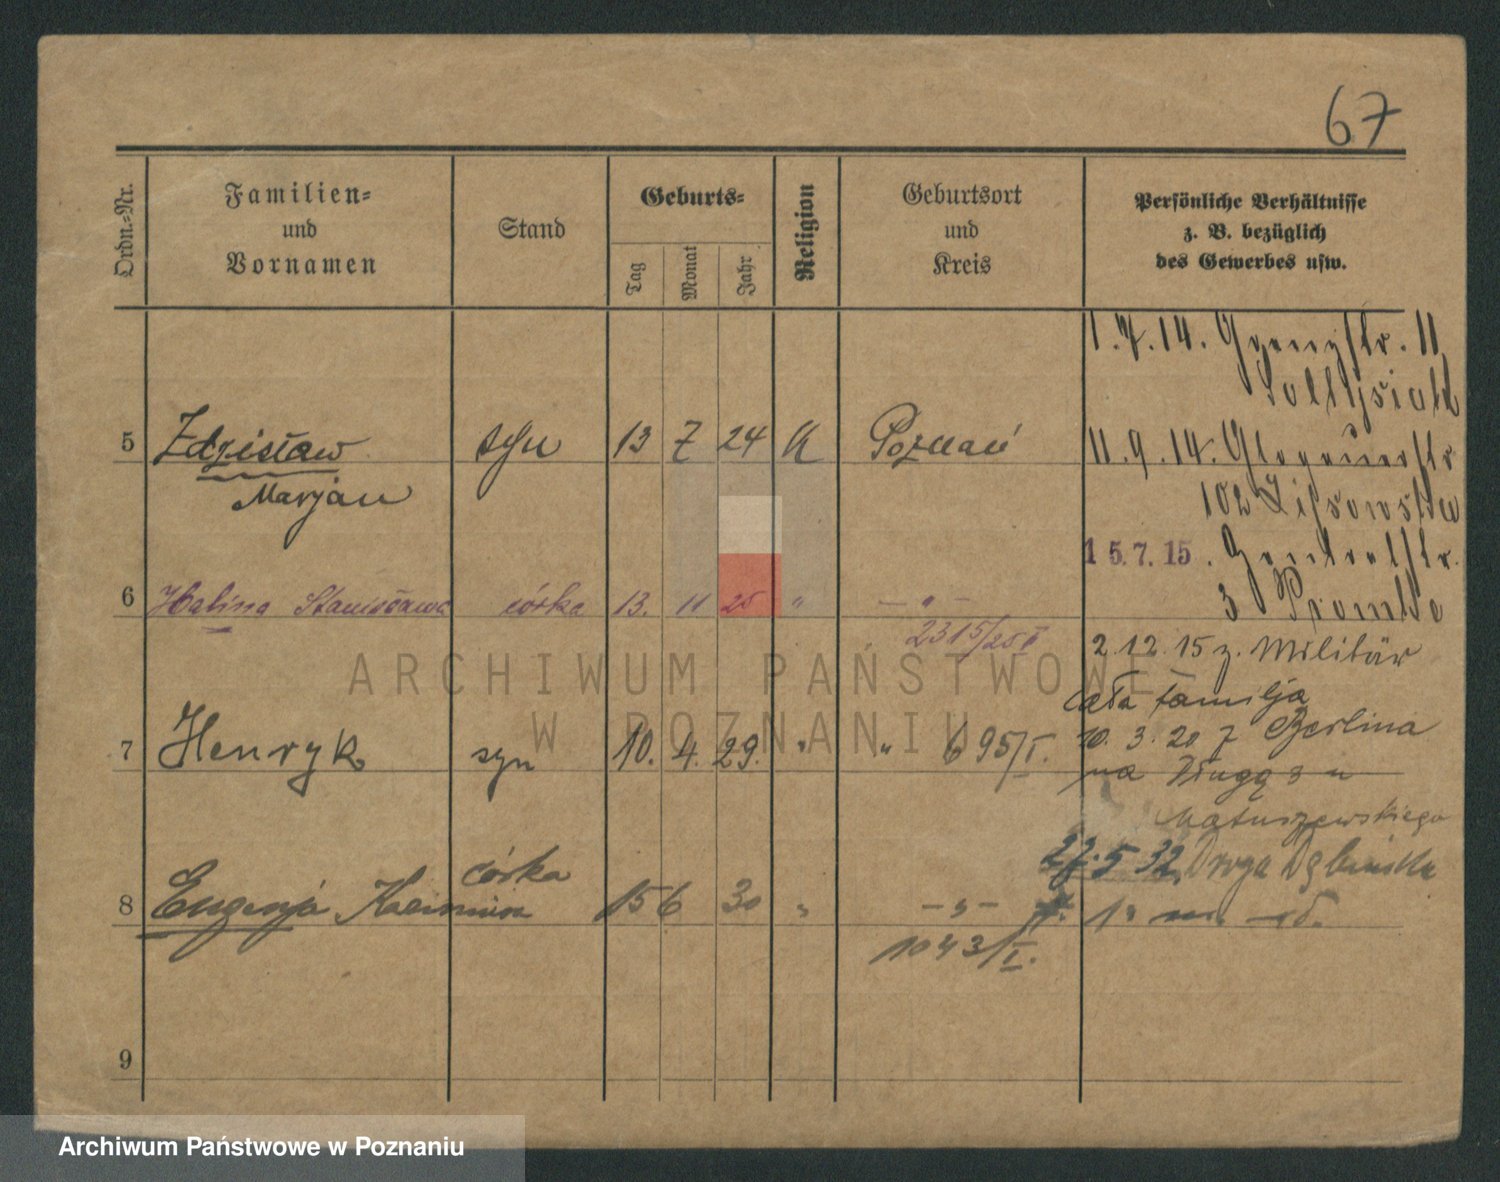 67
Ordn.-Nr.
Familien-
und
Vornamen
Stand
Geburts-
Tag
Monat
Jahr
Religion
Geburtsort
und
Kreis
Persönliche Verhältnisse
z. B. bezüglich
des Gewerbes usw.
1.7.14. 11
5 Zdzisław syn 13 7 24 K Poznań
Marjan
11.9.14. Glogauerstr
102
15.7.15.
6 Halina Stanisława córka 13. 11 25 " — " —
2315/25 I
3
2.12.15 z. Militär
cała familja
7 Henryk syn 10. 4. 29. " " 695/I.
10.3.20 z Berlina
na Długą 3 u
Matuszewskiego
27.5 32. Droga Dębińska
8 Eugenja Kazimiera córka 15 6 30 " — " —
1043/I.
9
ARCHIWUM PAŃSTWOWE
W POZNANIU
Archiwum Państwowe w Poznaniu